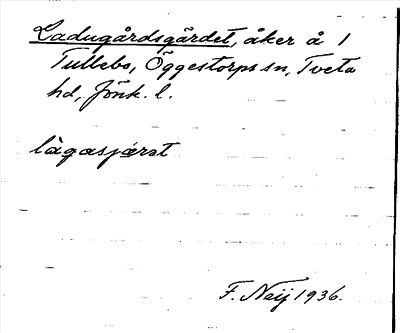 Ladugårdsgärdet, åker å 1
Tullebo, Öggestorps sn, Tveta
hd, Jönk. l.
làgasjæ̀rat
F. Neij 1936.